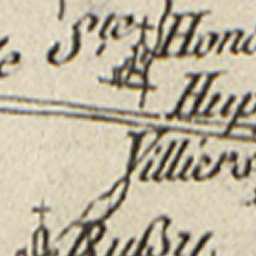 Ste Hono
Hup
Villiers
Rußy